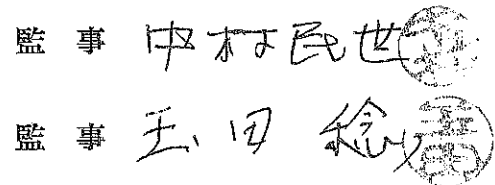 監 事 中村民世
監 事 玉田 稔